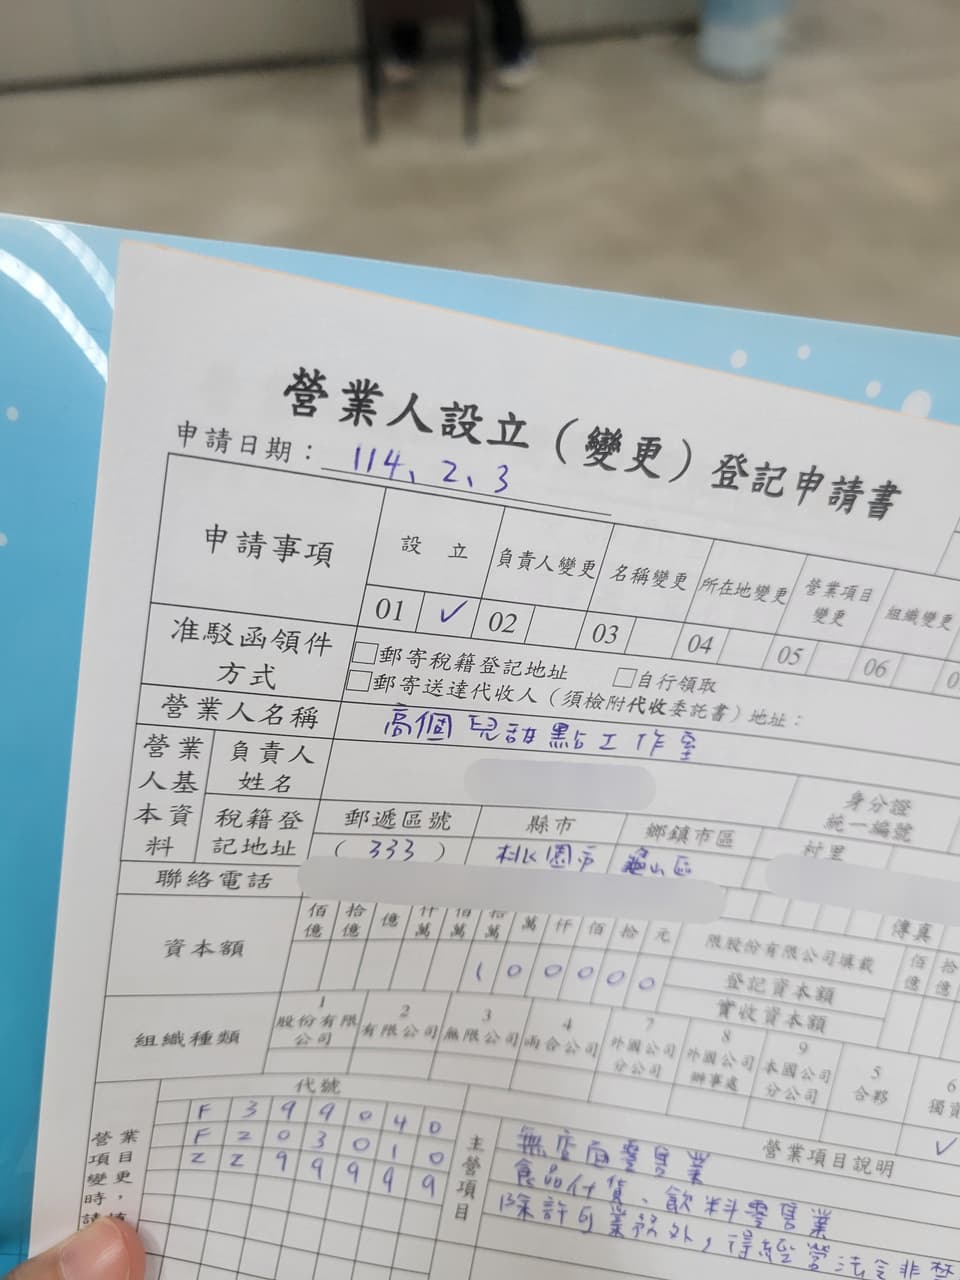 營業人設立（變更）登記申請書
申請日期：114、2、3
申請事項
設立 負責人變更 名稱變更 所在地變更 營業項目變更 組織變更
01 ✓ 02 03 04 05 06
准駁函領件方式
□郵寄稅籍登記地址 □自行領取
□郵寄送達代收人（須檢附代收委託書）地址：
營業人名稱 高個兒甜點工作室
營業人基本資料
負責人姓名
身分證統一編號
稅籍登記地址
郵遞區號 縣市 鄉鎮市區 村里
（333） 桃園市 龜山區
聯絡電話
傳真
資本額
佰億 拾億 億 仟萬 佰萬 拾萬 萬 仟 佰 拾 元
1 0 0 0 0 0
限股份有限公司填載
登記資本額
實收資本額
佰億 拾億
組織種類
1 股份有限公司
2 有限公司
3 無限公司
4 兩合公司
7 外國公司分公司
8 外國公司辦事處
9 本國公司分公司
5 合夥
6 獨資
✓
營業項目變更時，
代號
主營項目
營業項目說明
F399040 無店面零售業
F203010 食品什貨、飲料零售業
ZZ99999 除許可業務外，得經營法令非